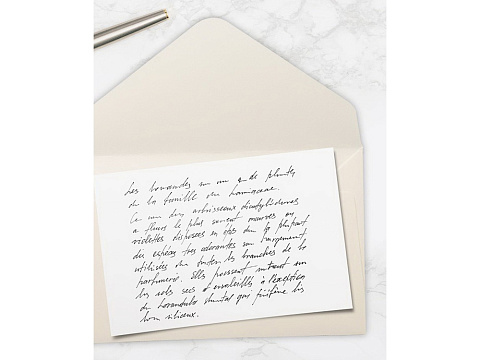 Les lavandes sont un genre de plantes
de la famille des Lamiaceae.
Ce sont des arbrisseaux dicotylédones
à fleurs le plus souvent mauves ou
violettes disposées en épis dont la plupart
des espèces très odorantes sont largement
utilisées dans toutes les branches de la
parfumerie. Elles poussent surtout sur
les sols secs et ensoleillés à l'exception
de Lavandula que préfère les
siliceux.